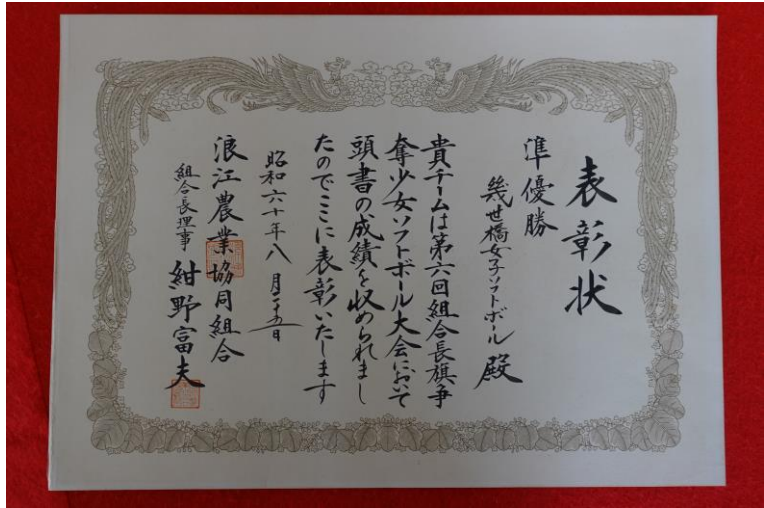 表彰状
準優勝
幾世橋女子ソフトボール殿
貴チームは第六回組合長旗争
奪少女ソフトボール大会において
頭書の成績を収められまし
たのでここに表彰いたします
昭和六十年八月二十五日
浪江農業協同組合
組合長理事 紺野富夫